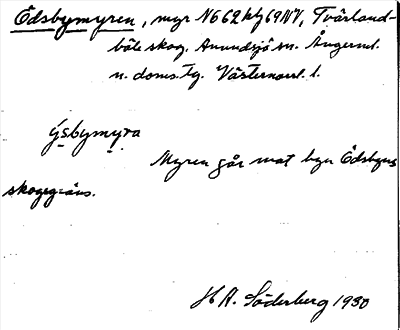 Ödsbymyren, myr N662 kfg 69 NV, Tvärland-
böle skog. Anundsjö sn. Ångerml.
n. doms. tg. Västernorrl. l.
ýsbymyra
Myren går mot byn Ödsbyns
skogsgräns.
H A. Söderberg 1930